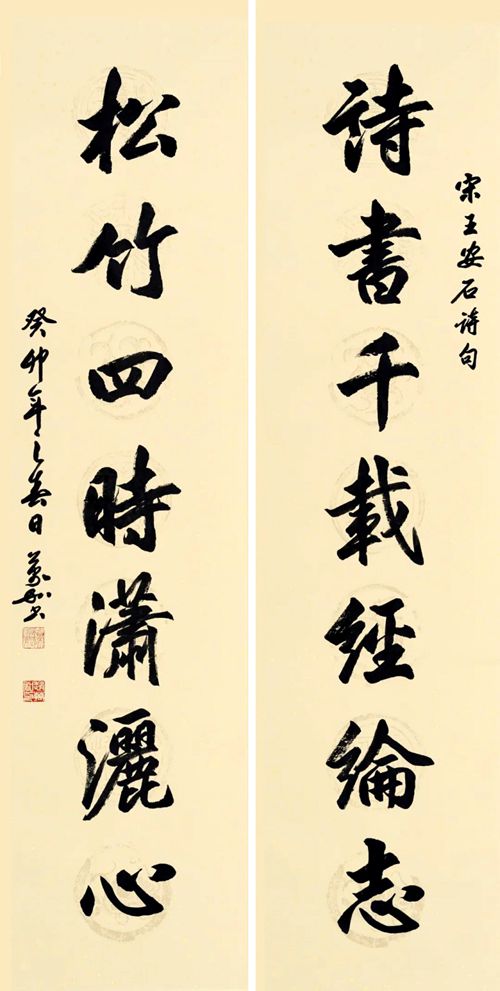 宋王安石诗句
詩書千載經綸志
松竹四時瀟灑心
癸卯年之春日